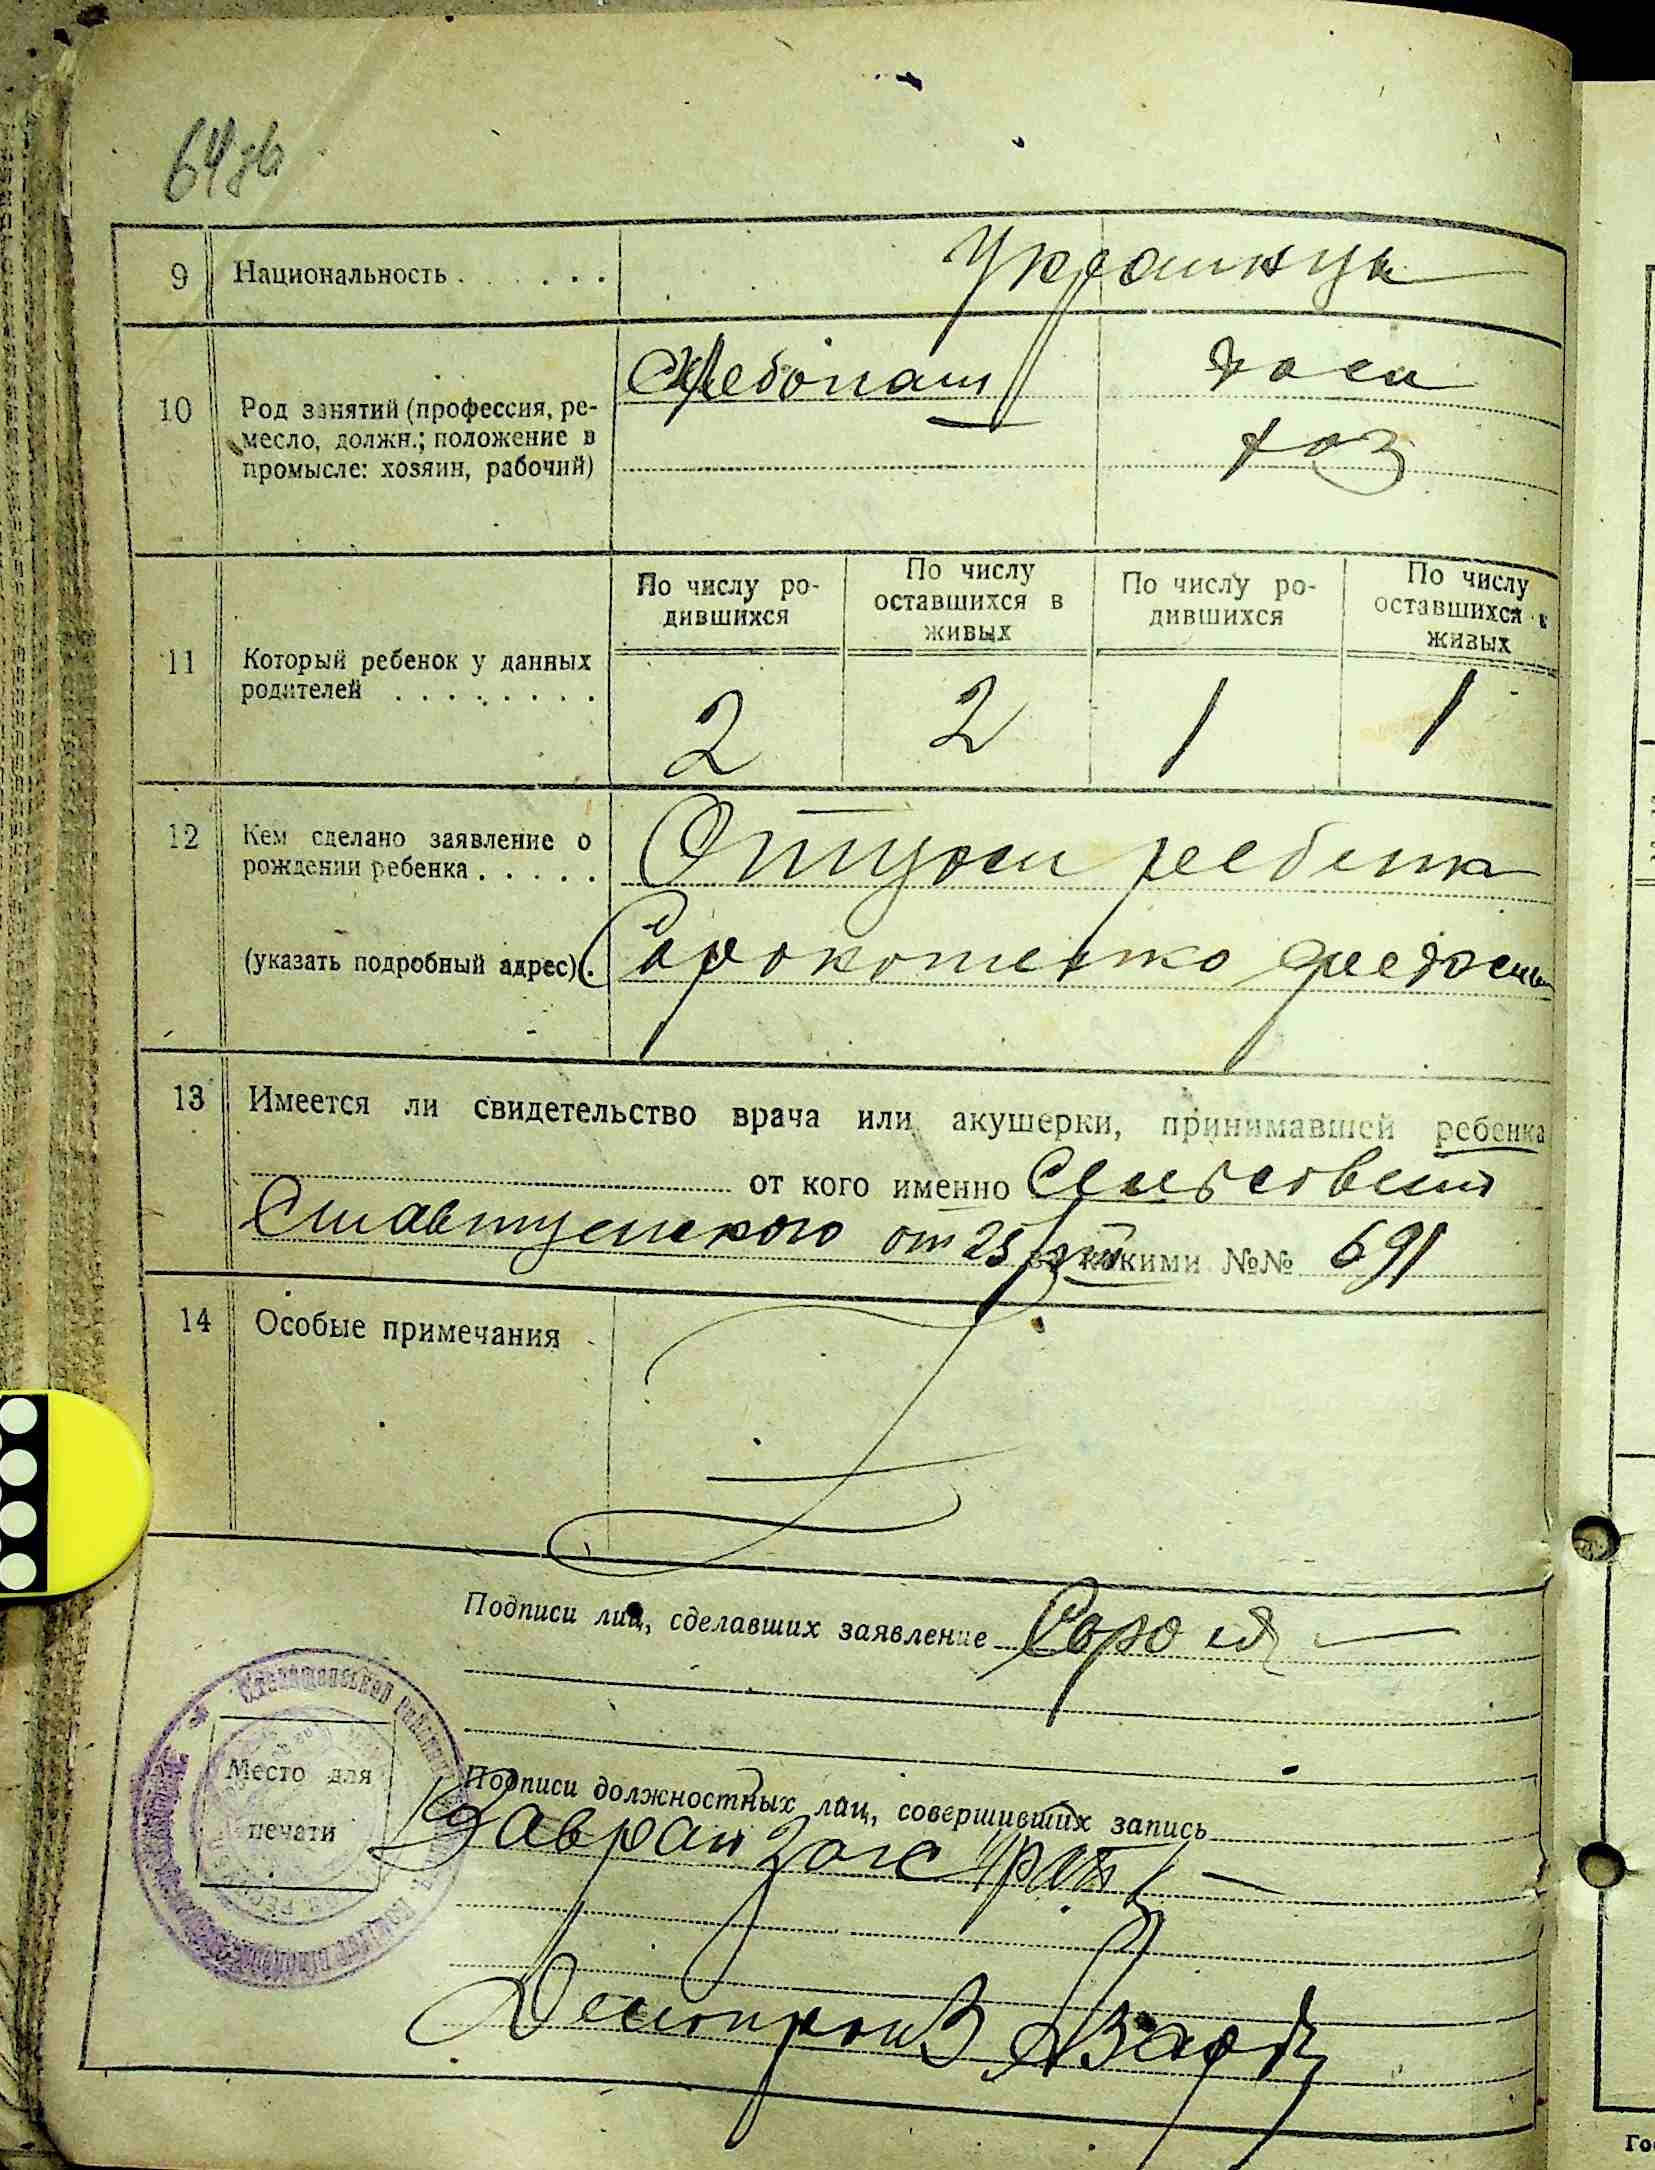 64 об
9 Национальность . . . . . . Украинцы
10 Род занятий (профессия, ре-
месло, должн.; положение в
промысле: хозяин, рабочий)
Хлебопаш дом
хоз
11 Который ребенок у данных
родителей . . . . . . . .
По числу ро-
дившихся
По числу
оставшихся в
живых
По числу ро-
дившихся
По числу
оставшихся в
живых
2 2 1 1
12 Кем сделано заявление о
рождении ребенка . . . . .
Отцом ребенка
(указать подробный адрес) .
13 Имеется ли свидетельство врача или акушерки, принимавшей ребенка
от кого именно Сельсовет
от 25 за какими №№ 691
14 Особые примечания
Подписи лиц, сделавших заявление
Место для
печати
Подписи должностных лиц, совершивших запись
Завран Загс
Делопроизв
Го